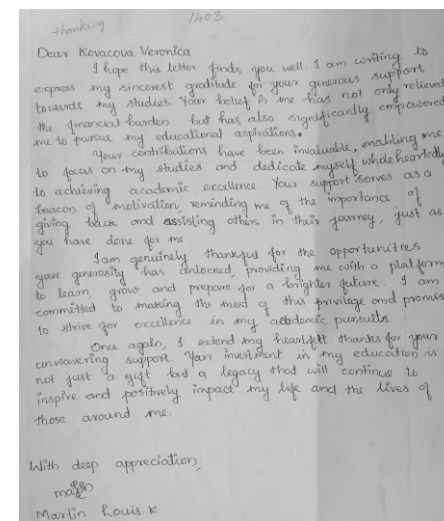 thanking
1403
Dear Kovacova Veronica
I hope this letter finds you well. I am writing to
express my sincerest gratitude for your generous support
towards my studies. Your belief in me has not only relieved
the financial burden but has also significantly empowered
me to pursue my educational aspirations.
Your contributions have been invaluable, enabling me
to focus on my studies and dedicate myself wholeheartedly
to achieving academic excellence. Your support serves as a
beacon of motivation, reminding me of the importance of
giving back and assisting others in their journey, just as
you have done for me.
I am genuinely thankful for the opportunitres
your generosity has unlocked, providing me with a platform
to learn, grow and prepare for a brighter future. I am
committed to making the most of this privilege and promise
to strive for excellence in my academic pursuits.
Once again, I extend my heartfelt thanks for your
unwavering support. Your investment in my education is
not just a gift but a legacy that will continue to
inspire and positively impact my life and the lives of
those around me.
With deep appreciation,
Martin Louis. K